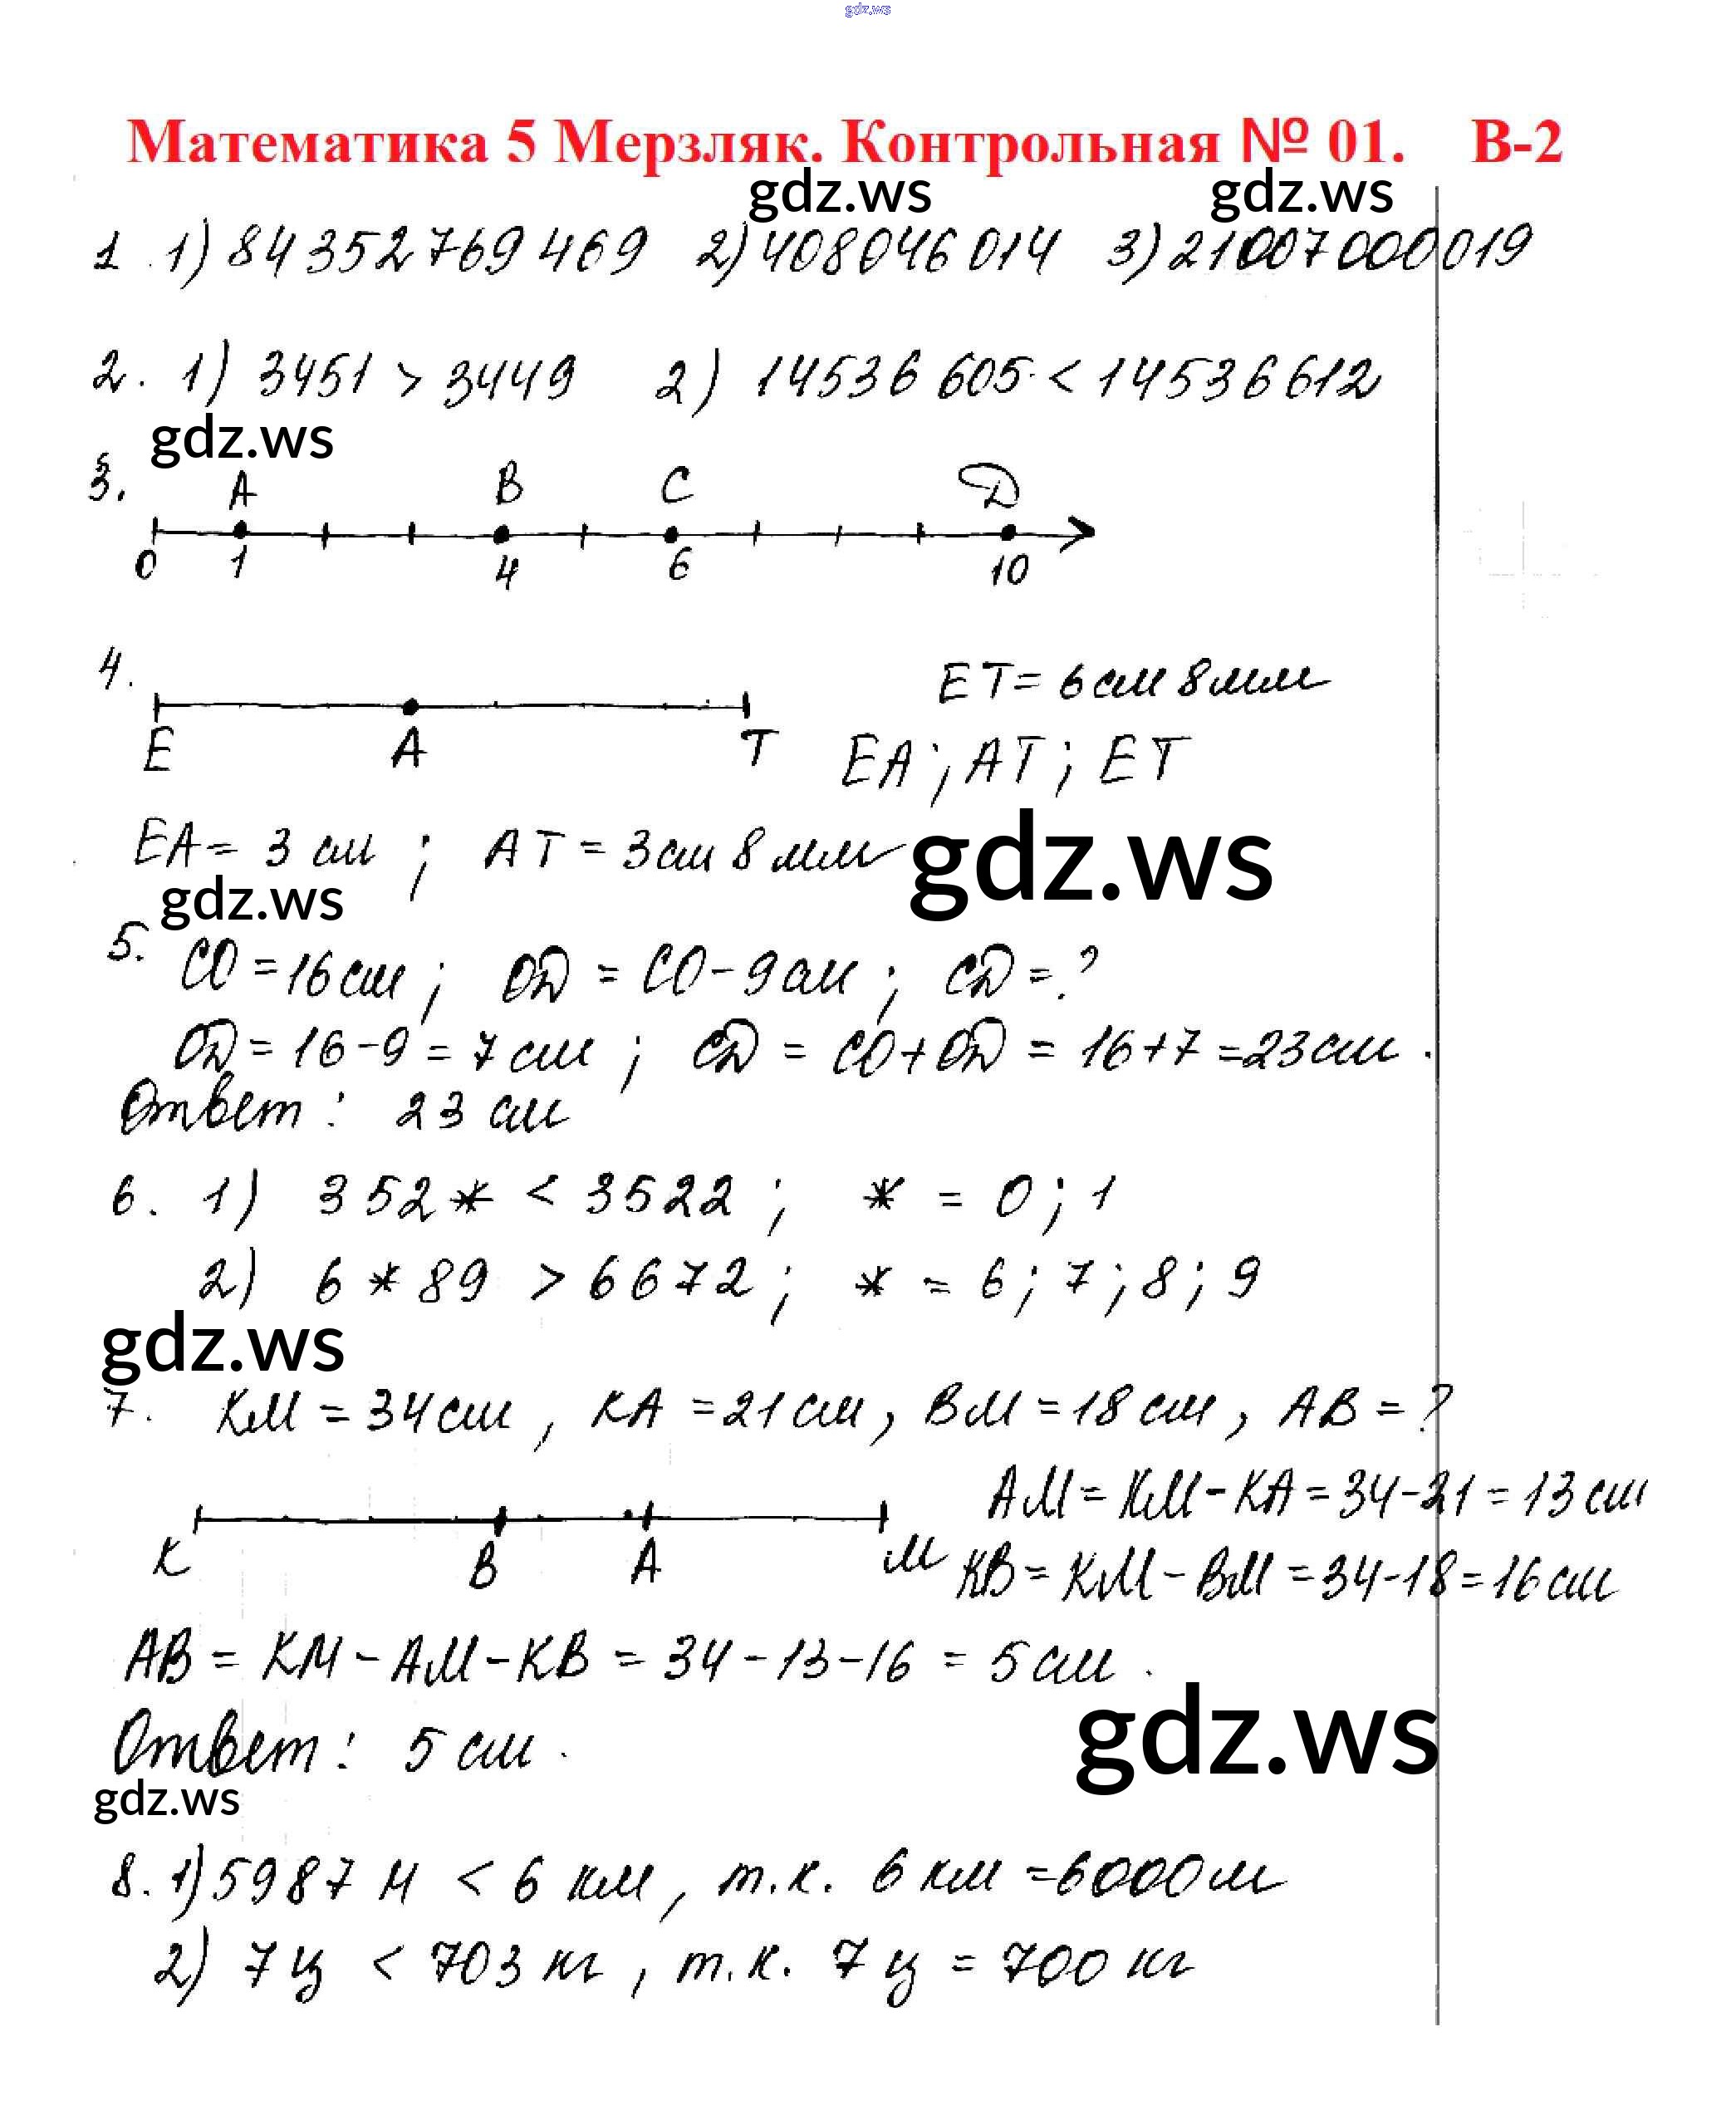 gdz.ws
Математика 5 Мерзляк. Контрольная № 01. В-2
gdz.ws gdz.ws
1. 1) 84 352 769 469 2) 408 046 014 3) 21 007 000 019
2. 1) 3451 > 3449 2) 14536 605 < 14536612
gdz.ws
3. A B C D
0 1 4 6 10
4. ET = 6 см 8 мм
E A T EA; AT; ET
EA = 3 см; AT = 3 см 8 мм
gdz.ws
gdz.ws
5. CO = 16 см; OD = CO - 9 см; CD = ?
OD = 16 - 9 = 7 см; CD = CO + OD = 16 + 7 = 23 см.
Ответ: 23 см
6. 1) 352* < 3522; * = 0; 1
2) 6*89 > 6672; * = 6; 7; 8; 9
gdz.ws
7. KM = 34 см, KA = 21 см, BM = 18 см, AB = ?
AM = KM - KA = 34 - 21 = 13 см
K B A M KB = KM - BM = 34 - 18 = 16 см
AB = KM - AM - KB = 34 - 13 - 16 = 5 см.
gdz.ws
Ответ: 5 см.
gdz.ws
8. 1) 5987 м < 6 км, т.к. 6 км = 6000 м
2) 7 ц < 703 кг, т.к. 7 ц = 700 кг